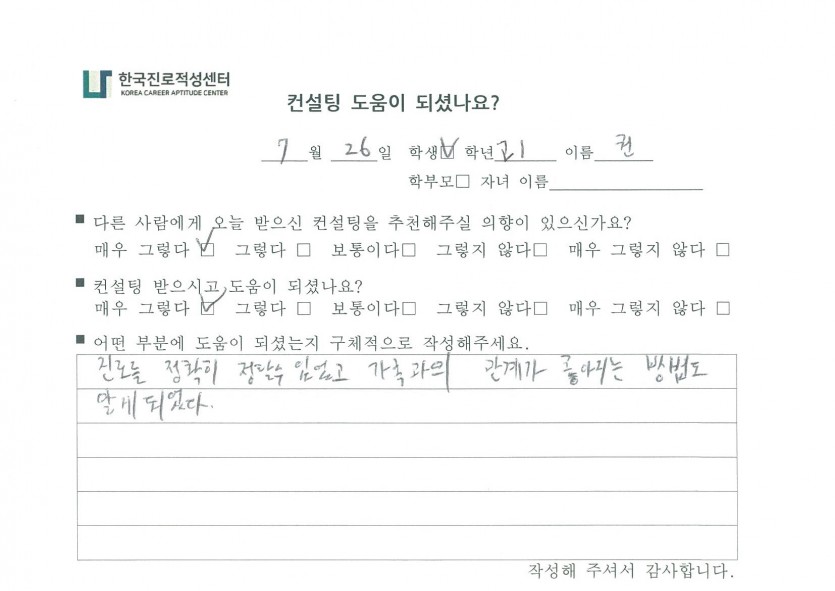 한국진로적성센터
KOREA CAREER APTITUDE CENTER
컨설팅 도움이 되셨나요?
7월 26일 학생☑ 학년 고1 이름 권
학부모□ 자녀 이름
■ 다른 사람에게 오늘 받으신 컨설팅을 추천해주실 의향이 있으신가요?
매우 그렇다 ☑ 그렇다 □ 보통이다□ 그렇지 않다□ 매우 그렇지 않다 □
■ 컨설팅 받으시고 도움이 되셨나요?
매우 그렇다 ☑ 그렇다 □ 보통이다□ 그렇지 않다□ 매우 그렇지 않다 □
■ 어떤 부분에 도움이 되셨는지 구체적으로 작성해주세요.
진로를 정확히 정할수 있었고 가족과의 관계가 좋아지는 방법도
알게 되었다.
작성해 주셔서 감사합니다.